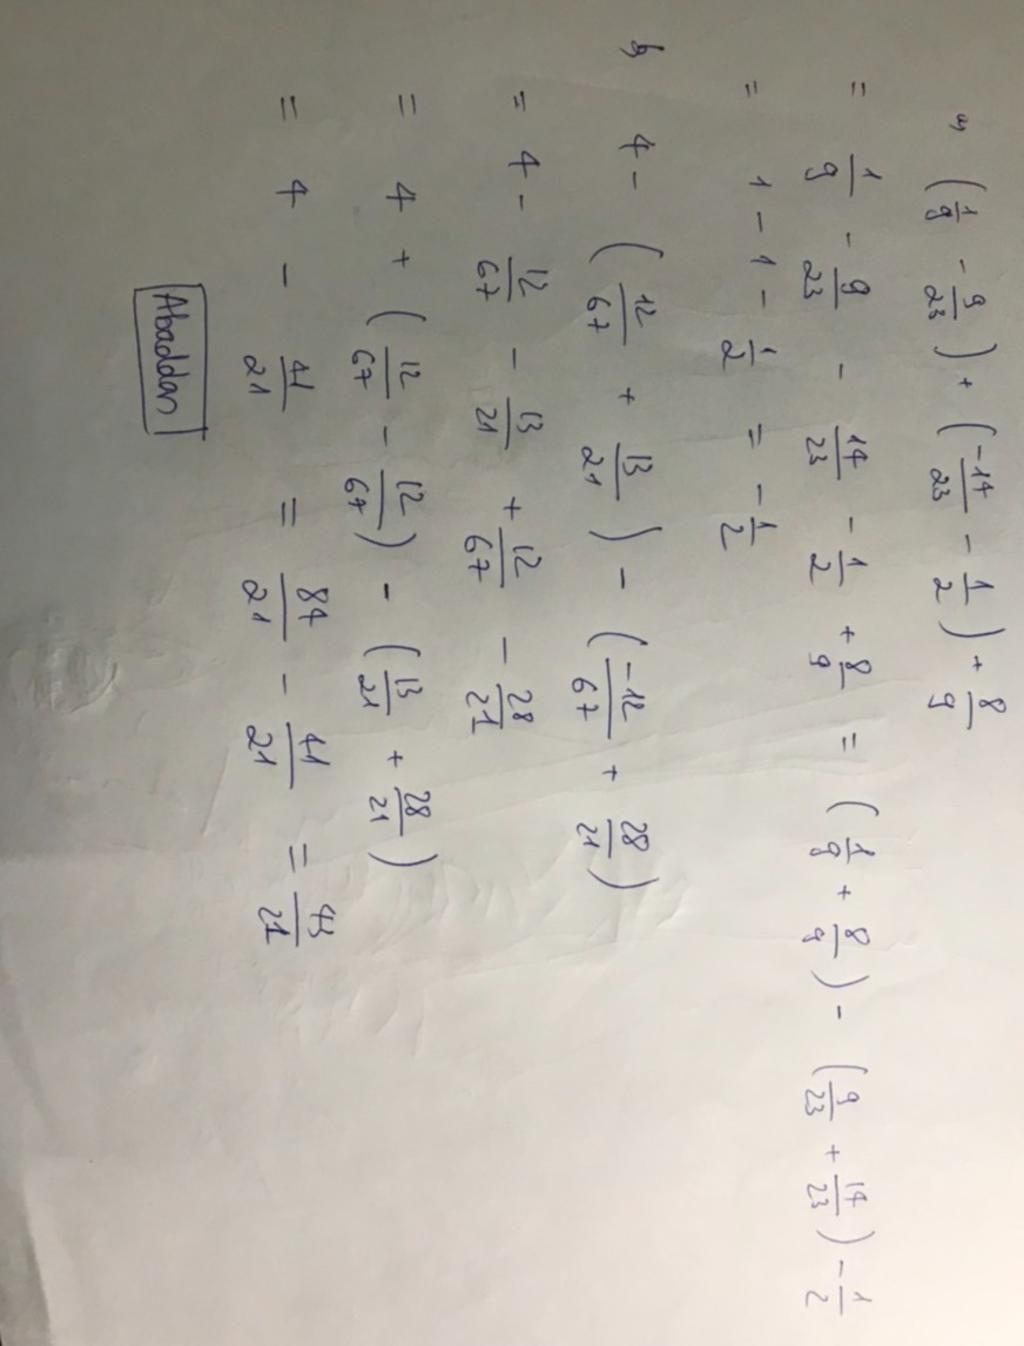 a, (1/9 - 9/23) + (-14/23 - 1/2) + 8/9
= 1/9 - 9/23 - 14/23 - 1/2 + 8/9 = (1/9 + 8/9) - (9/23 + 14/23) - 1/2
= 1 - 1 - 1/2 = - 1/2
b, 4 - (12/67 + 13/21) - (-12/67 + 28/21)
= 4 - 12/67 - 13/21 + 12/67 - 28/21
= 4 + (12/67 - 12/67) - (13/21 + 28/21)
= 4 - 41/21 = 84/21 - 41/21 = 43/21
Abaddan